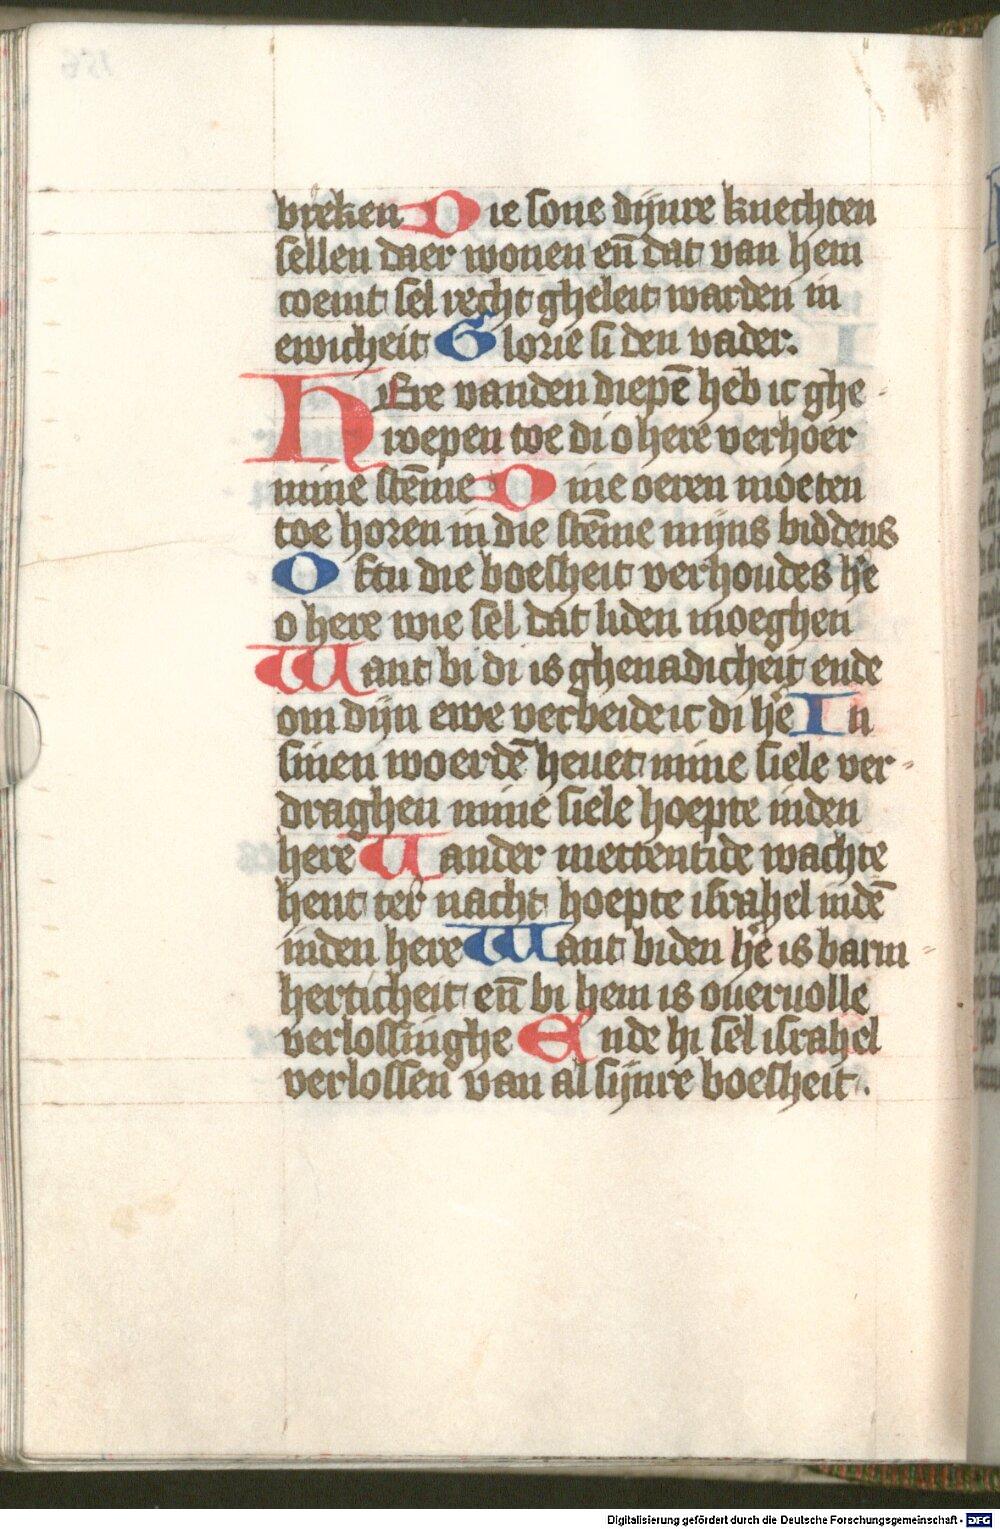 breken Die sone dijnre knechten
sellen daer wonen en̄ dat van hem
coemt sel recht gheleit warden in
ewicheit Glorie si den vader.
HEre vanden diepē heb ic ghe
roepen toe di o here verhoer
mine stēme Dine oeren moeten
toe horen in die stēme mijns biddens
Oftu die boesheit verhoudes h̄e
o here wie sel dat liden moeghen
Want bi di is ghenadicheit ende
om dijn ewe verbeide ic di h̄e In
sinen woerdē heuet mine siele ver-
draghen mine siele hoepte inden
here Uander mettentide wachte
hent ter nacht hoepte israhel indē
inden here Want biden h̄e is barm
herticheit en̄ bi hem is oueruolle
verlossinghe Ende hi sel israhel
verlossen van al sijnre boesheit.
Digitalisierung gefördert durch die Deutsche Forschungsgemeinschaft - DFG